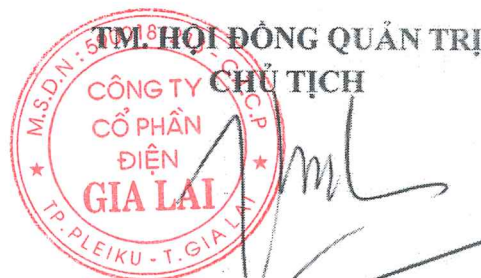 TM. HỘI ĐỒNG QUẢN TRỊ
CHỦ TỊCH
M.S.D.N:
C.P
CÔNG TY
CỔ PHẦN
ĐIỆN
GIA LAI
TP.PLEIKU - T. GIA LAI